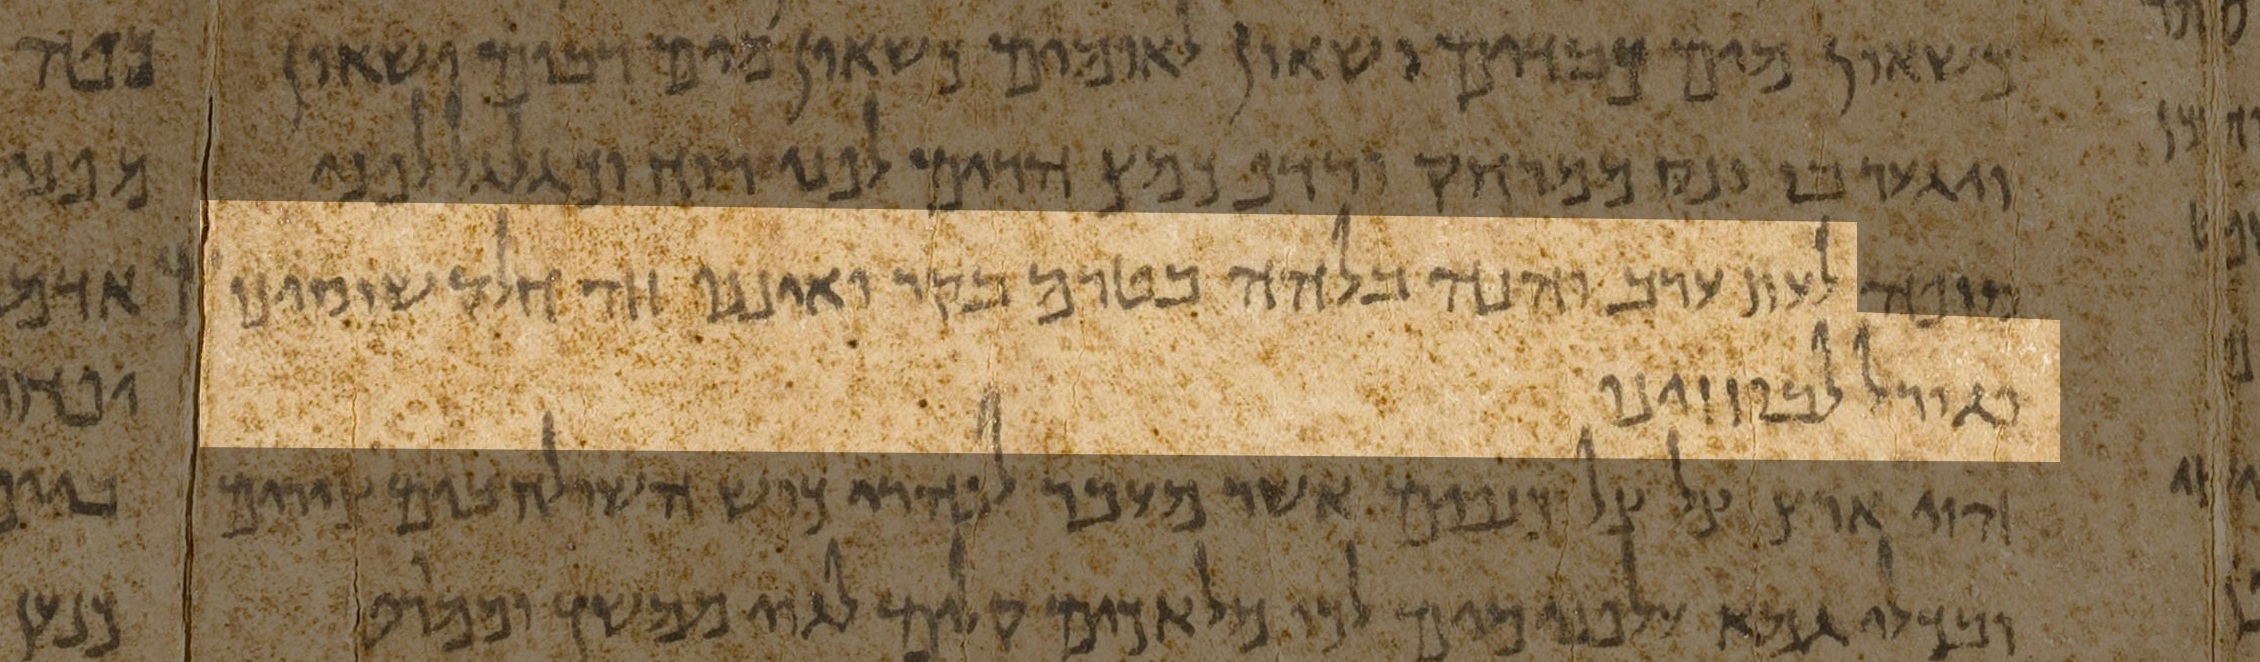 כשאון מים כבירים ישאון לאומים כשאון מים רבים ישאון
ויגער בו ונס ממרחק ורדף כמץ הרים לפני רוח וכגלגל לפני
סופה לעת ערב והנה בלהה בטרם בקר ואיננו זה חלק שוסינו
וגורל לבוזזינו
הוי ארץ צל צל כנפים אשר מעבר לנהרי כוש השולח בים צירים
ובכלי גמא על פני מים לכו מלאכים קלים לגוי ממשך וממורט